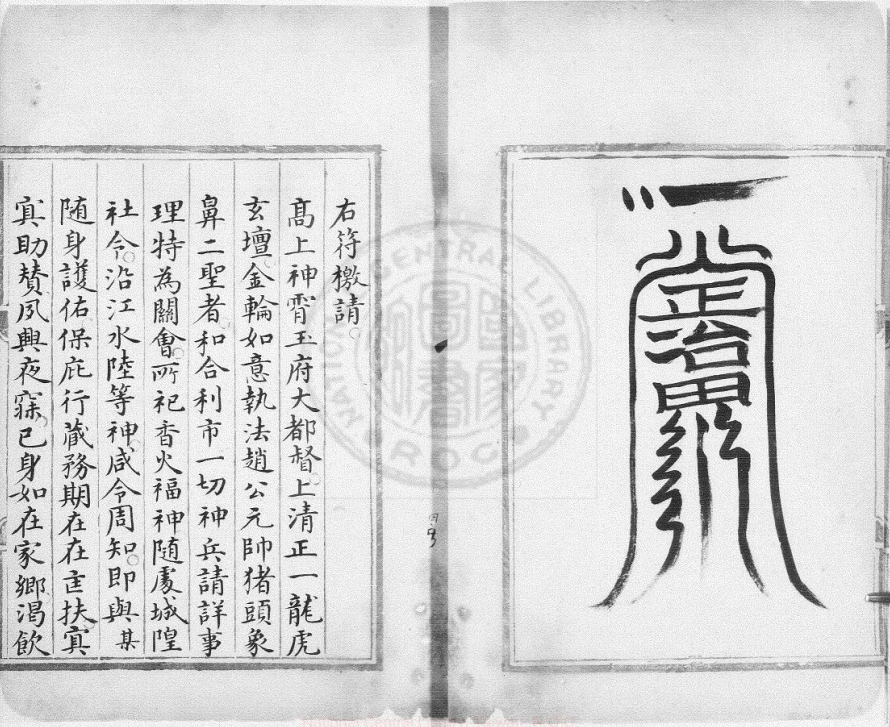 正治
右符檄請。
髙上神霄玉府大都督上清正一龍虎
玄壇金輪如意執法趙公元帥猪頭象
鼻二聖者和合利市一切神兵請詳事
理特為關會所祀香火福神随處城隍
社令沿江水陸等神咸令周知即與某
随身護佑保庇行藏務期在在匡扶寘
寘助賛夙興夜寐已身如在家鄉渴飲
NATIONAL CENTRAL LIBRARY
ROC
國家圖書館